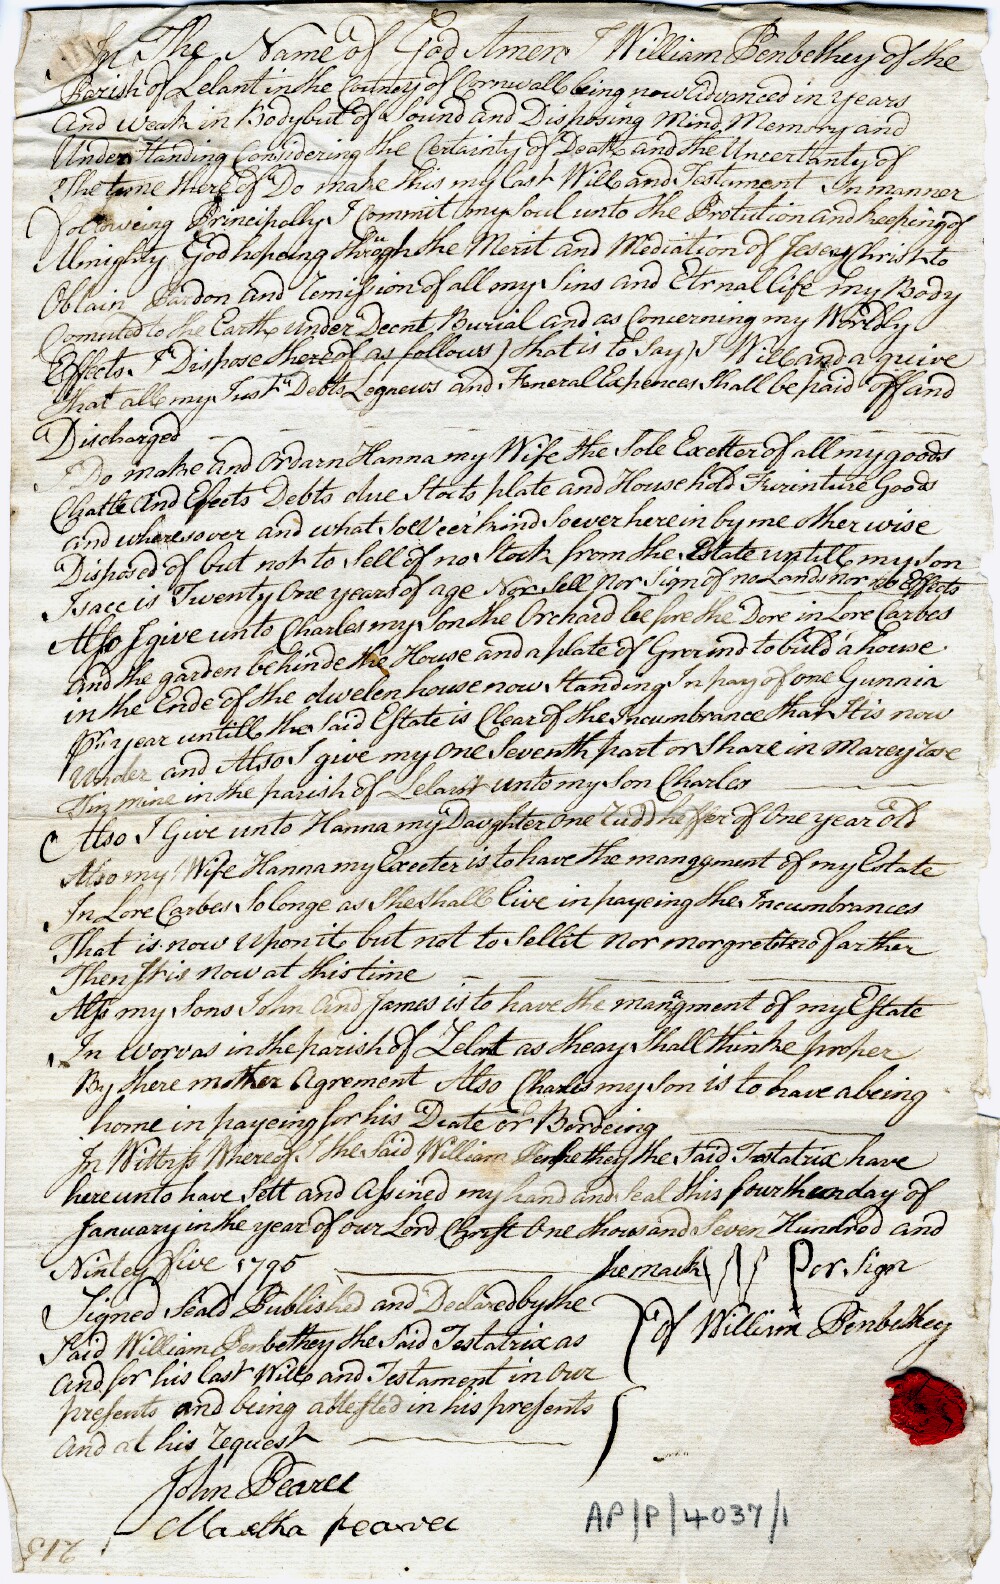 In The Name of God Amen I William Penbethey of the
Parish of Lelant in the Countey of Cornwall being now advanced in years
and weak in Body but of Sound and Disposing Mind Memory and
Understanding Considering the Certainty of Death and the Uncertanty of
The time there of Do make this my last Will and Testament In manner
following Principally I Commit my Soul unto the Protution and keeping of
Almighty God hopeing through the Merit and Mediation of Jesey Christ to
Obtain Pardon and Remission of all my Sins and Eternal life my Body
Comuted to the Earth under Decnt Burial and as Concerning my Worldly
Effects I Dispose there of as follows) that is to Say) I Will and a quire
that all my Just Debts Legaceys and Feneral Expences Shall be paid off and
Discharged
I Do make and Ordarn Hanna my Wife the Sole Exetter of all my goods
Chatle And Efects Debts due Stocts plate and Household Furinture Goods
and wheresover and what SoeVeer kind Soever herein by me other wise
Disposed of but not to Sell of no Stock from the Estate untill my son
Isacc is Twenty One years of age Nor Sell nor Sign of no Lands nor no Effects
Also I give unto Charles my Son the Orchard before the Dore in Lore Carbes
and the garden behinde the House and a plate of Ground to build a house
in the Ende of the dwelen house now Standing In pay of one Gunnia
pr year untill the Said Estate is Clear of the Incumbrance that It is now
under and Also I give my One Seventh part or Share in Marey
Tin mine in the parish of Lelant unto my Son Charles
Also I Give unto Hanna my Daughter One Rudd heffer of One year old
Also my Wife Hanna my Exeeter is to have the mangyment of my Estate
In Lore Carbes So longe as She Shall live in payeing the Incumbrances
That is now upon it but not to Sell it nor morgret it no farther
Then It is now at this time
Also my Sons John and James is to have the managment of my Estate
In Worvas in the parish of Lelat as theay Shall thinke proper
By there mother Agrement Also Charles my Son is to have a being
home in payeing for his Diate or Bordeing
In Wittness Whereof I the Said William Penbethey the Said Testatrix have
here unto have Sett and Assined my hand and Seal this fourtheen day of
January in the year of our Lord Christ One thousand Seven Hundred and
Ninley five 1795 he mark Por Sign
of William Penbethey
Signed Seald Published and Declared by the
Said William Penbethey the Said Testatrix as
and for his last Will and Testament in our
presents and being attested in his presents
and at his request
John Pearce
Martha pearce
AP/P/4037/1
213